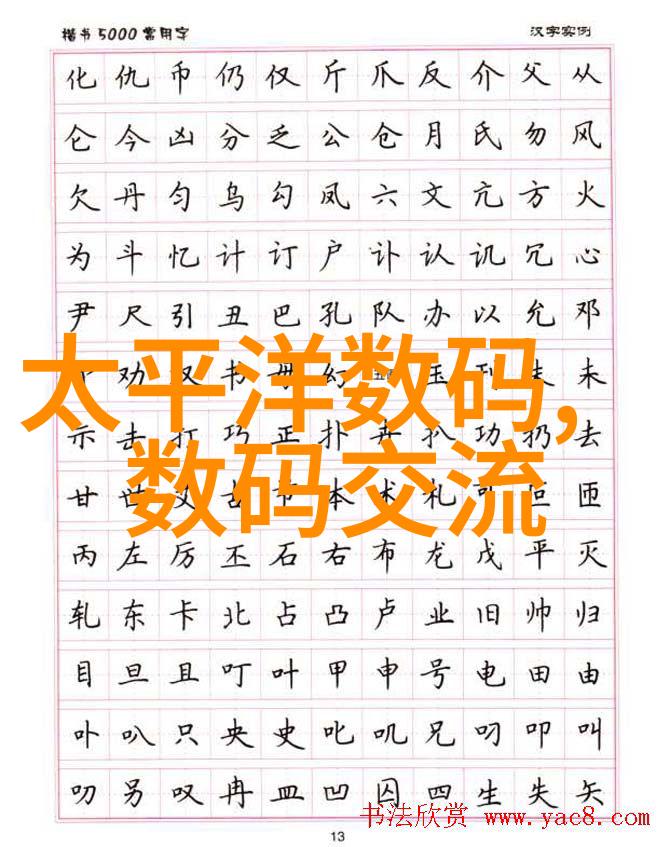 楷书5000常用字 汉字实例
化 仇 币 仍 仅 斤 爪 反 介 父 从
仑 今 凶 分 乏 公 仓 月 氏 勿 风
欠 丹 匀 乌 勾 凤 六 文 亢 方 火
为 斗 忆 计 订 户 讣 认 讥 冗 心
尹 尺 引 丑 巴 孔 队 办 以 允 邓
劝 双 书 毋 幻 玉 刊 末 未
太平洋数码,
示 击 打 巧 正 扑 卉 扒 功 扔 去
数码交流
甘 世 艾 古 节 本 术 札 可 叵 匝
丙 左 厉 丕 石 右 布 龙 戊 平 灭
轧 东 卡 北 占 凸 卢 业 旧 帅 归
目 旦 且 叮 叶 甲 申 号 电 田 由
卟 叭 只 央 史 叱 叽 兄 叼 叩 叫
叻 另 叹 冉 皿 凹 囚 四 生 失 矢
书法欣赏 www.yac8.com
13